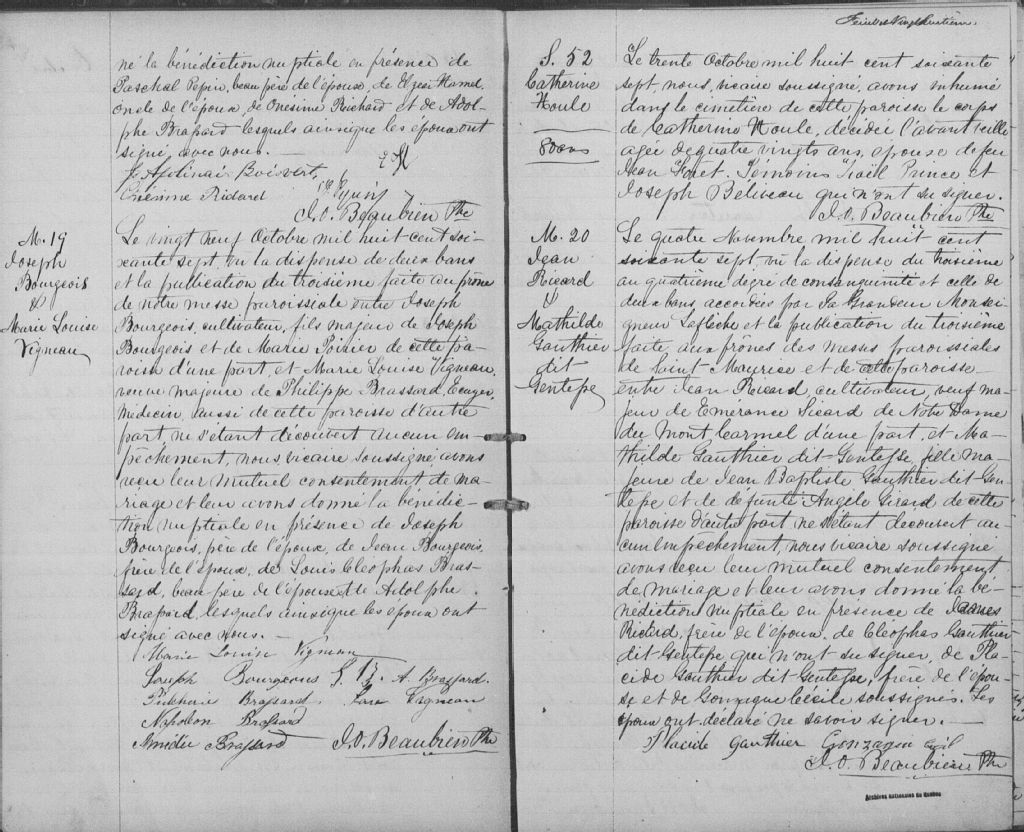 né la bénédiction nuptiale en présence de
Paschal Pepin, beau père de l'époux, de Uzeb Hamel
oncle de l'époux, de Onesime Richard et de Adol-
phe Brassard lesquels ainsi que les époux ont
signé avec nous.—
J. Apolinair Boisvert
Onésime Richard
J.O. Beaubien Ptre
M. 19
Joseph
Bourgeois
&
Marie Louise
Vigneau
Le vingt neuf Octobre mil huit cent soi-
xante sept, vu la dispense de deux bans
et la publication du troisième faite au prône
de notre messe paroissiale entre Joseph
Bourgeois, cultivateur, fils majeur de Joseph
Bourgeois et de Marie Poirier de cette pa-
roisse d'une part, et Marie Louise Vigneau,
veuve majeure de Philippe Brassard, Ecuyer,
Médecin, aussi de cette paroisse d'autre
part, ne s'étant découvert aucun em-
pêchement, nous, vicaire soussigné, avons
reçu leur mutuel consentement de ma-
riage et leur avons donné la bénédic-
tion nuptiale en présence de Joseph
Bourgeois, père de l'époux, de Jean Bourgeois,
frère de l'époux, de Louis Cléophas Bras-
sard, beau frère de l'épouse, de Adolphe
Brassard, lesquels ainsi que les époux ont
signé avec nous.—
Marie Louise Vigneau
Joseph Bourgeous J. B. A. Brassard.
Brassard Vigneau
Napoleon Brassard
Amédée Brassard J.O. Beaubien Ptre
Feuillet Vingt huitième.
S. 52
Catherine
Houle
80 ans
Le trente Octobre mil huit cent soixante
sept, nous, vicaire soussigné, avons inhumé
dans le cimetière de cette paroisse le corps
de Catherine Houle, décédée l'avant veille
agée de quatre vingts ans, épouse de feu
Jean Foret. Témoins Joël Prince et
Joseph Beliveau qui n'ont su signer.
J.O. Beaubien Ptre
M. 20
Jean
Ricard
&
Mathilde
Gauthier
dit
Gentesse
Le quatre Novembre mil huit cent
soixante sept, vu la dispense du troisième
au quatrième degré de consanguinité et celle de
deux bans, accordées par Sa Grandeur Monsei-
gneur Laflèche et la publication du troisième
faite aux prônes des messes paroissiales
de Saint Maurice et de cette paroisse
entre Jean Ricard, cultivateur, veuf ma-
jeur de Emérance Sicard de Notre Dame
du Mont Carmel d'une part, et Ma-
thilde Gauthier dit Gentesse, fille ma-
jeure de Jean Baptiste Gauthier dit Gen-
tesse et de défunte Angèle Girard de cette
paroisse d'autre part ne s'étant découvert au-
cun empêchement, nous vicaire soussigné
avons reçu leur mutuel consentement
de mariage et leur avons donné la bé-
nédiction nuptiale en présence de James
Ricard, frère de l'époux, de Cléophas Gauthier
dit Gentesse qui n'ont su signer, de Pla-
cide Gauthier dit Gentesse, frère de l'épou-
se et de Gonzague Cécile soussignés. Les
époux ont déclaré ne savoir signer.—
Placide Gauthier Gonzague
J.O. Beaubien Ptre
Archives nationales du Québec